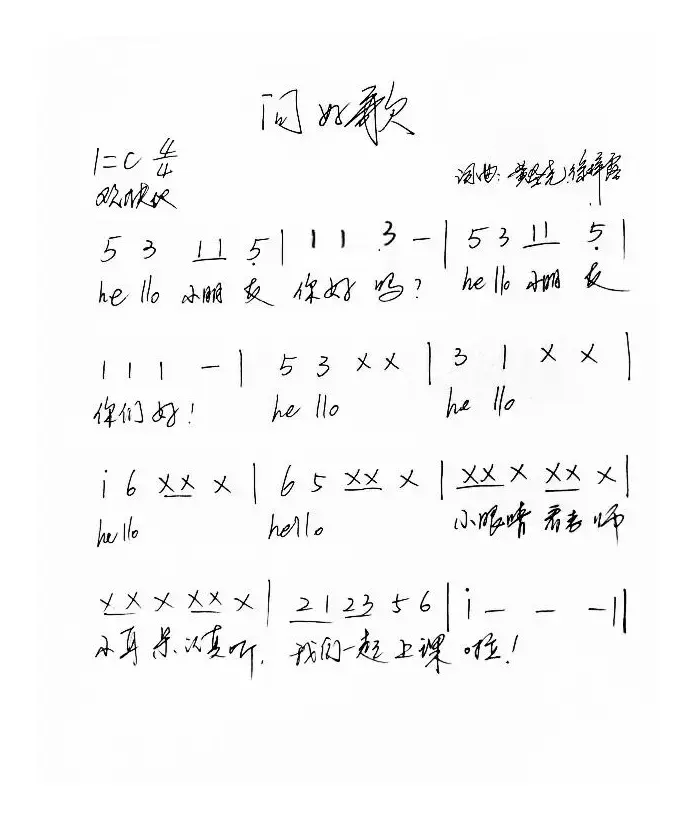 问好歌
1=C 4/4
欢快地
词曲:
5 3 1 1 5̣ | 1 1 3 — | 5 3 1 1 5̣ |
hello 小朋友 你好吗? hello 小朋友
1 1 1 — | 5 3 × × | 3 1 × × |
你们好! hello hello
i 6 ×× × | 6 5 ×× × | ×× × ×× × |
hello hello 小眼睛 看老师
×× × ×× × | 2 1 2 3 5 6 | i — — — ‖
小耳朵认真听, 我们一起上课 啦!